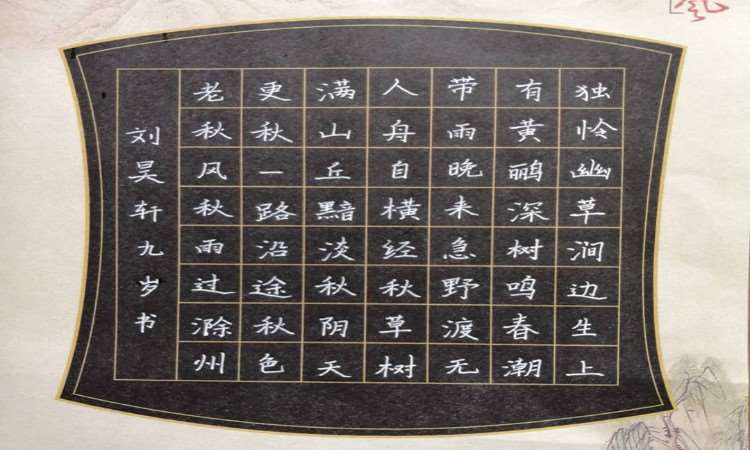 独怜幽草涧边生上
有黄鹂深树鸣春潮
带雨晚来急野渡无
人舟自横经秋草树
满山丘黯淡秋阴天
更秋一路沿途秋色
老秋风秋雨过滁州
刘昊轩九岁书